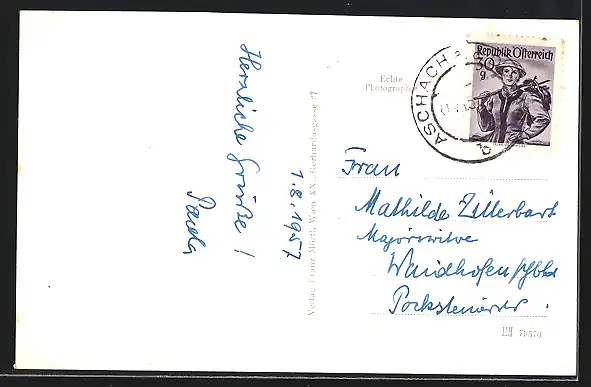 Herzliche Grüße!
Paula
1.8.1957
Verlag Franz Mörtl, Wien XX., Gerhardusgasse 27
Echte
Photographie
Republik Österreich
30
g
ASCHACH a. d.
Frau
Mathilde Zillerbart
Majorswitwe
Waidhofen/Ybbs
Pocksteiner
M 79570